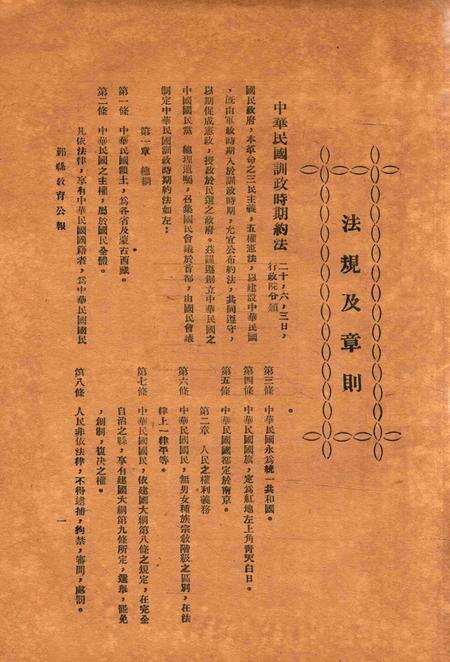 法規及章則
中華民國訓政時期約法
二十，六，三日，
行政院令頒
國民政府，本革命之三民主義，五權憲法，以建設中華民國
，旣由軍政時期入於訓政時期，允宜公布約法，共同遵守，
以期促成憲政，授政於民選之政府。茲謹遵創立中華民國之
中國國民黨　總理遺囑，召集國民會議於首都，由國民會議
制定中華民國訓政時期約法如左：
第一章　總綱
第一條　中華民國領土，爲各省及蒙古西藏。
第二條　中華民國之主權，屬於國民全體。
凡依法律，享有中華民國國籍者，爲中華民國國民
。
第三條　中華民國永爲統一共和國。
第四條　中華民國國旗，定爲紅地左上角靑天白日。
第五條　中華民國國都定於南京。
第二章　人民之權利義務
第六條　中華民國國民，無男女種族宗敎階級之區別，在法
律上一律平等。
第七條　中華民國國民，依建國大綱第八條之規定，在完全
自治之縣，享有建國大綱第九條所定，選舉，罷免
，創制，復決之權。
第八條　人民非依法律，不得逮捕，拘禁，審問，處罰。
鄞縣敎育公報
一